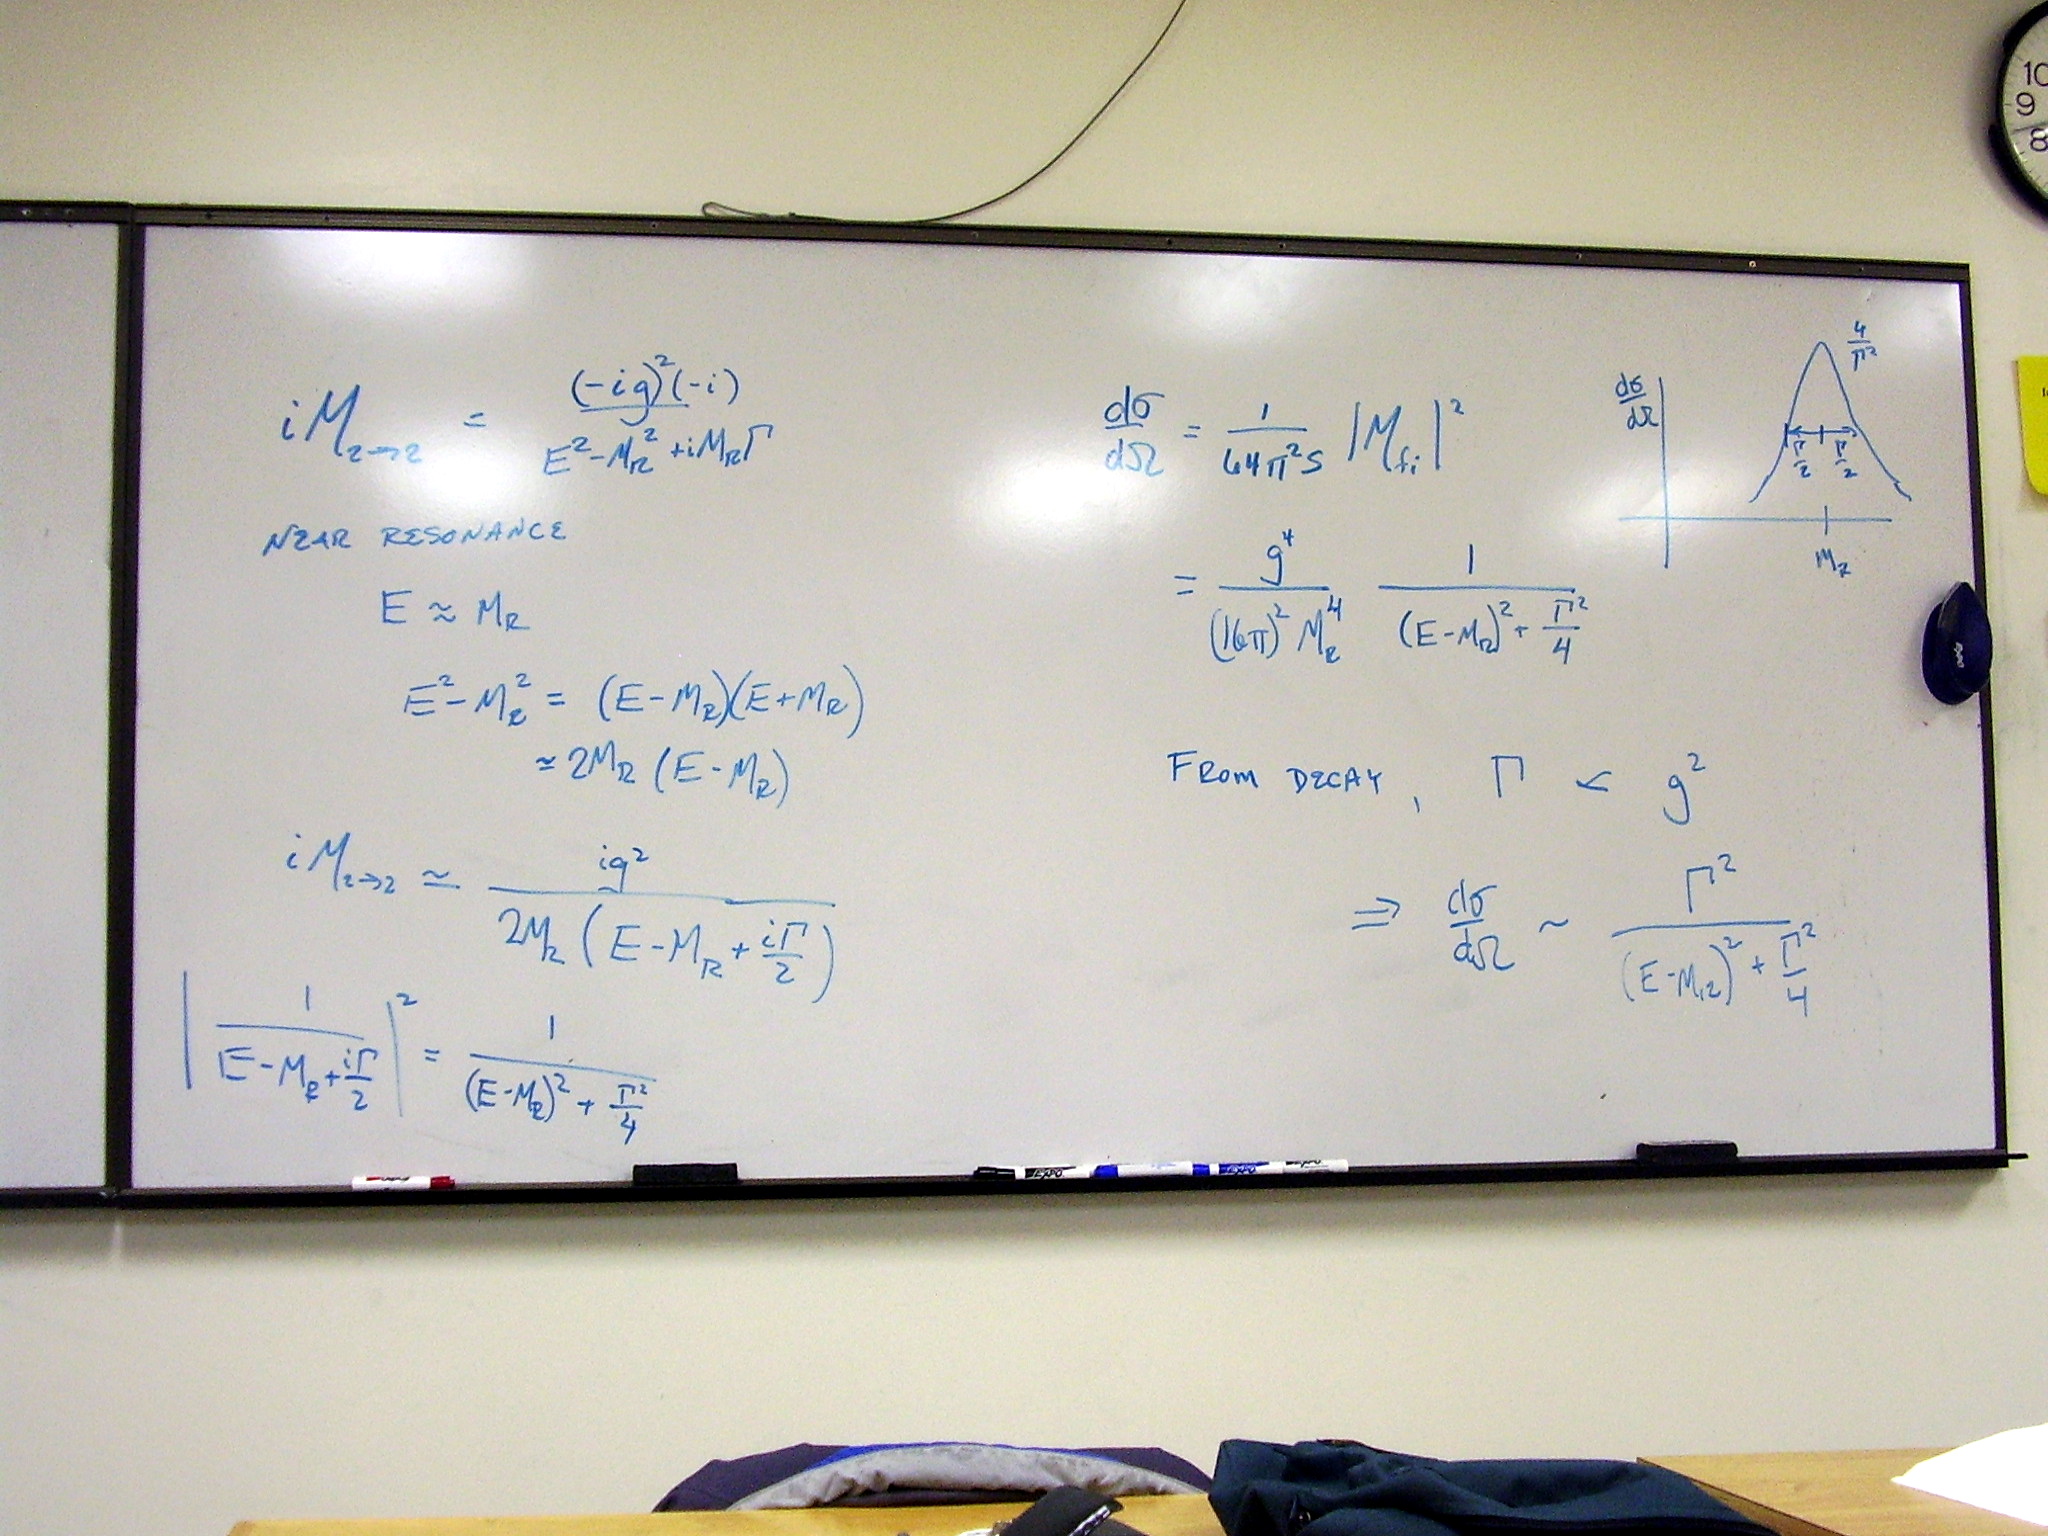 iM₂→₂ = (-ig)²(-i) / (E² - M_R² + iM_RΓ)
NEAR RESONANCE
E ≈ M_R
E² - M_R² = (E - M_R)(E + M_R)
≃ 2M_R (E - M_R)
iM₂→₂ ≃ ig² / (2M_R (E - M_R + iΓ/2))
|1 / (E - M_R + iΓ/2)|² = 1 / ((E - M_R)² + Γ²/4)
dσ/dΩ = 1/(64π²s) |M_fi|²
= g⁴ / ((16π)² M_R⁴) 1 / ((E - M_R)² + Γ²/4)
FROM DECAY, Γ ∝ g²
⇒ dσ/dΩ ~ Γ² / ((E - M_R)² + Γ²/4)
dσ/dΩ
4/Γ²
Γ/2 Γ/2
M_R
10
9
8
EXPO
EXPO